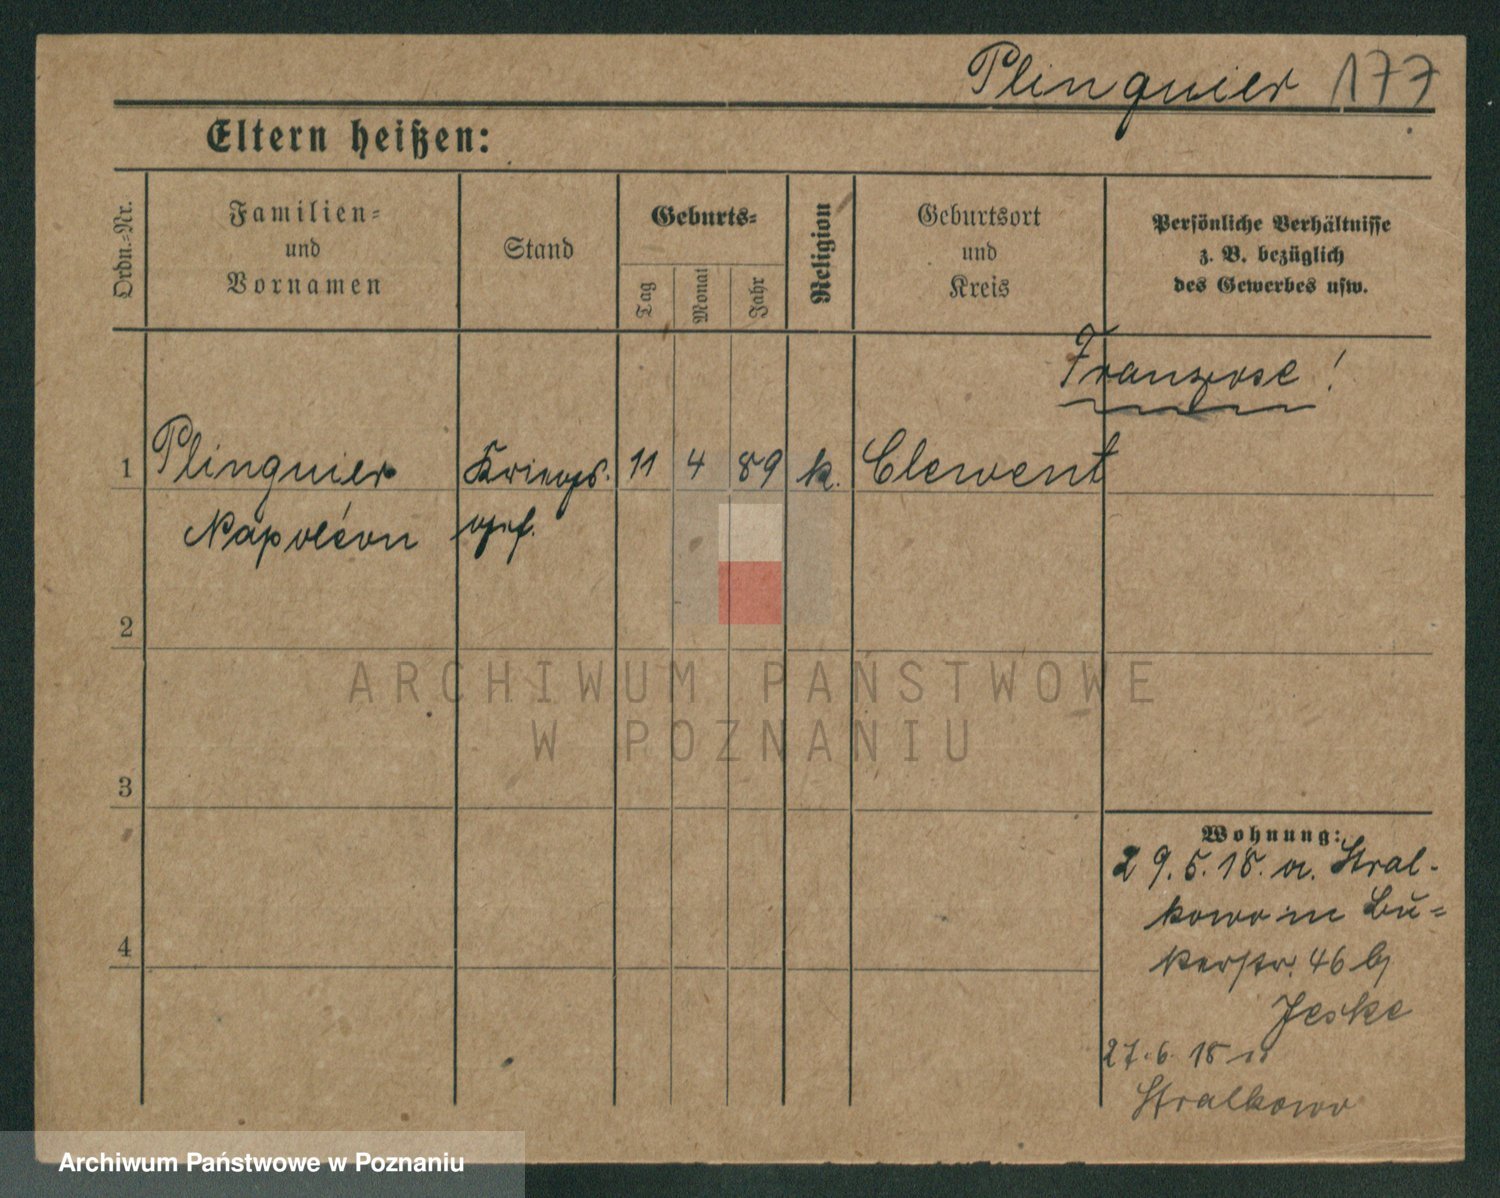 Plinguier 177
Eltern heißen:
Ordn.-Nr.
Familien-
und
Vornamen
Stand
Geburts-
Tag
Monat
Jahr
Religion
Geburtsort
und
Kreis
Persönliche Verhältnisse
z. B. bezüglich
des Gewerbes usw.
Franzose!
1 Plinguier Kriegs. 11 4 89 k. Clervent
Napoléon gef.
2
3
4
Wohnung:
29.5.18. a. Stral-
kowo in Bu-
kerstr. 46 b/
Jeske
27.6.18 n
Stralkowo
ARCHIWUM PAŃSTWOWE
W POZNANIU
Archiwum Państwowe w Poznaniu